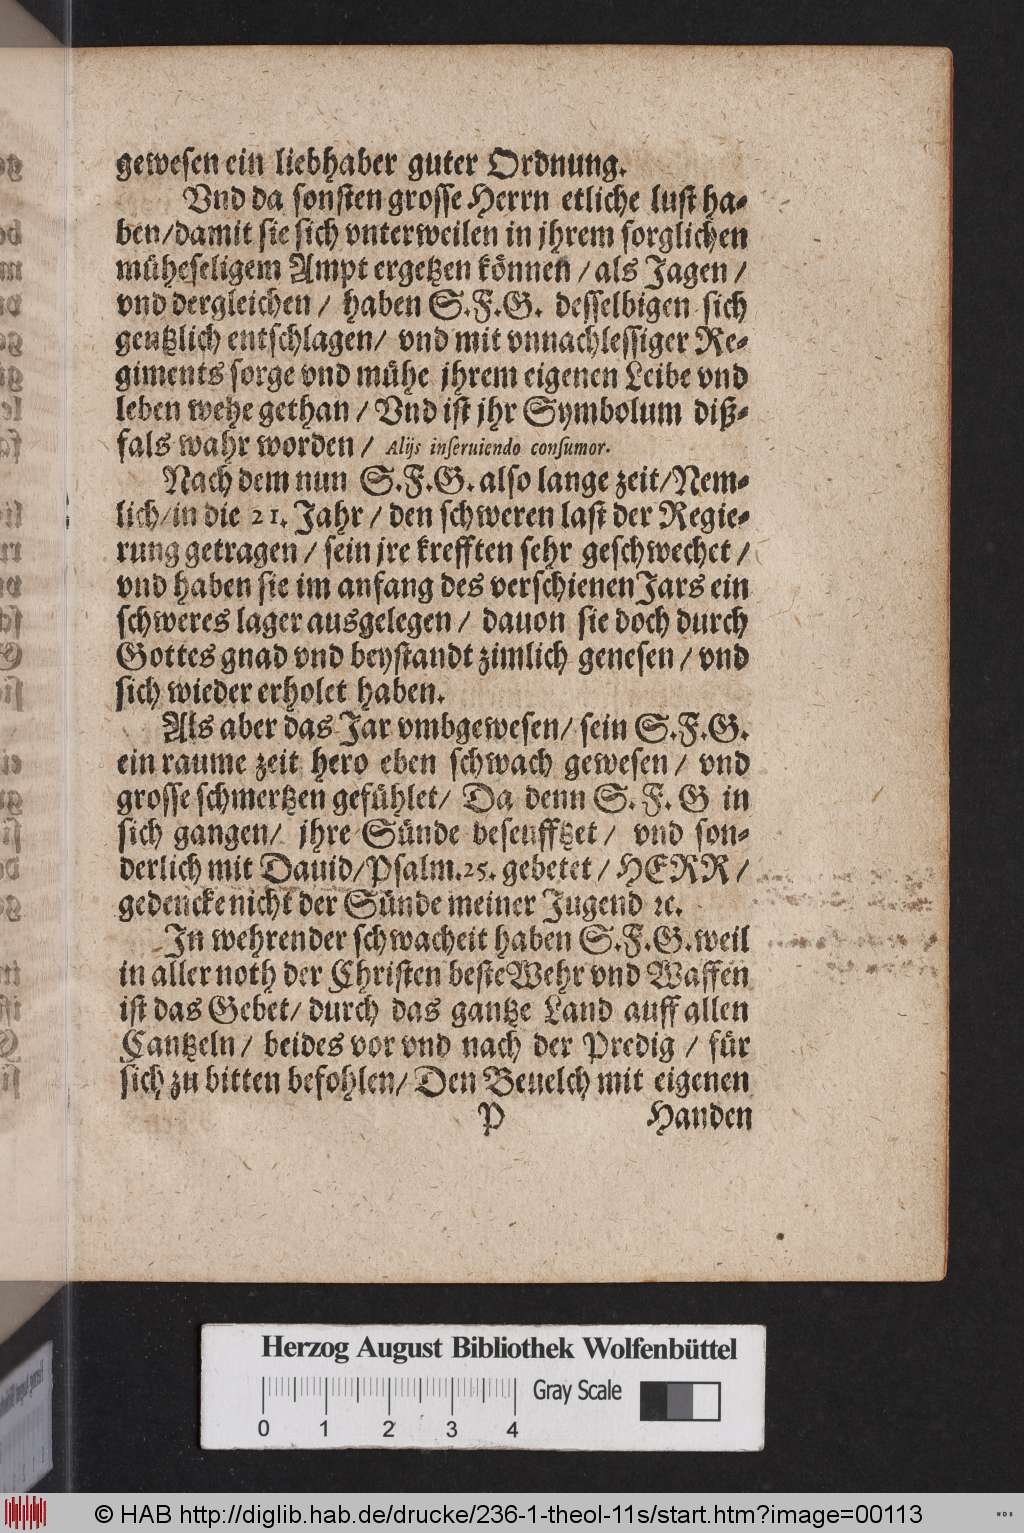 gewesen ein liebhaber guter Ordnung.
Vnd da sonsten grosse Herrn etliche lust ha-
ben/damit sie sich vnterweilen in jhrem sorglichen
müheseligem Ampt ergetzen können / als Jagen /
vnd dergleichen / haben S.F.G. desselbigen sich
gentzlich entschlagen/ vnd mit vnnachlessiger Re-
giments sorge vnd mühe jhrem eigenen Leibe vnd
leben wehe gethan / Vnd ist jhr Symbolum diß-
fals wahr worden / Alijs inseruiendo consumor.
Nach dem nun S.F.G. also lange zeit/Nem-
lich/in die 21. Jahr / den schweren last der Regie-
rung getragen / sein jre krefften sehr geschwechet /
vnd haben sie im anfang des verschienen Jars ein
schweres lager ausgelegen / dauon sie doch durch
Gottes gnad vnd beystandt zimlich genesen / vnd
sich wieder erholet haben.
Als aber das Jar vmbgewesen/ sein S.F.G.
ein raume zeit hero eben schwach gewesen / vnd
grosse schmertzen gefühlet/ Da denn S. F. G in
sich gangen/ jhre Sünde beseufftzet / vnd son-
derlich mit Dauid/Psalm.25. gebetet / HERR /
gedencke nicht der Sünde meiner Jugend ꝛc.
In wehrender schwacheit haben S.F.G. weil
in aller noth der Christen beste Wehr vnd Waffen
ist das Gebet/ durch das gantze Land auff allen
Cantzeln / beides vor vnd nach der Predig / für
sich zu bitten befohlen/ Den Beuelch mit eigenen
P Handen
Herzog August Bibliothek Wolfenbüttel
Gray Scale
0 1 2 3 4
© HAB http://diglib.hab.de/drucke/236-1-theol-11s/start.htm?image=00113